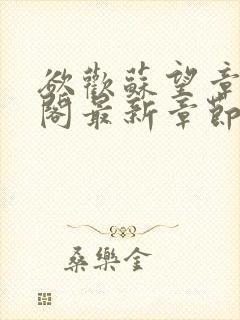 欲歡蘇望章
閣最新章節
桑樂金